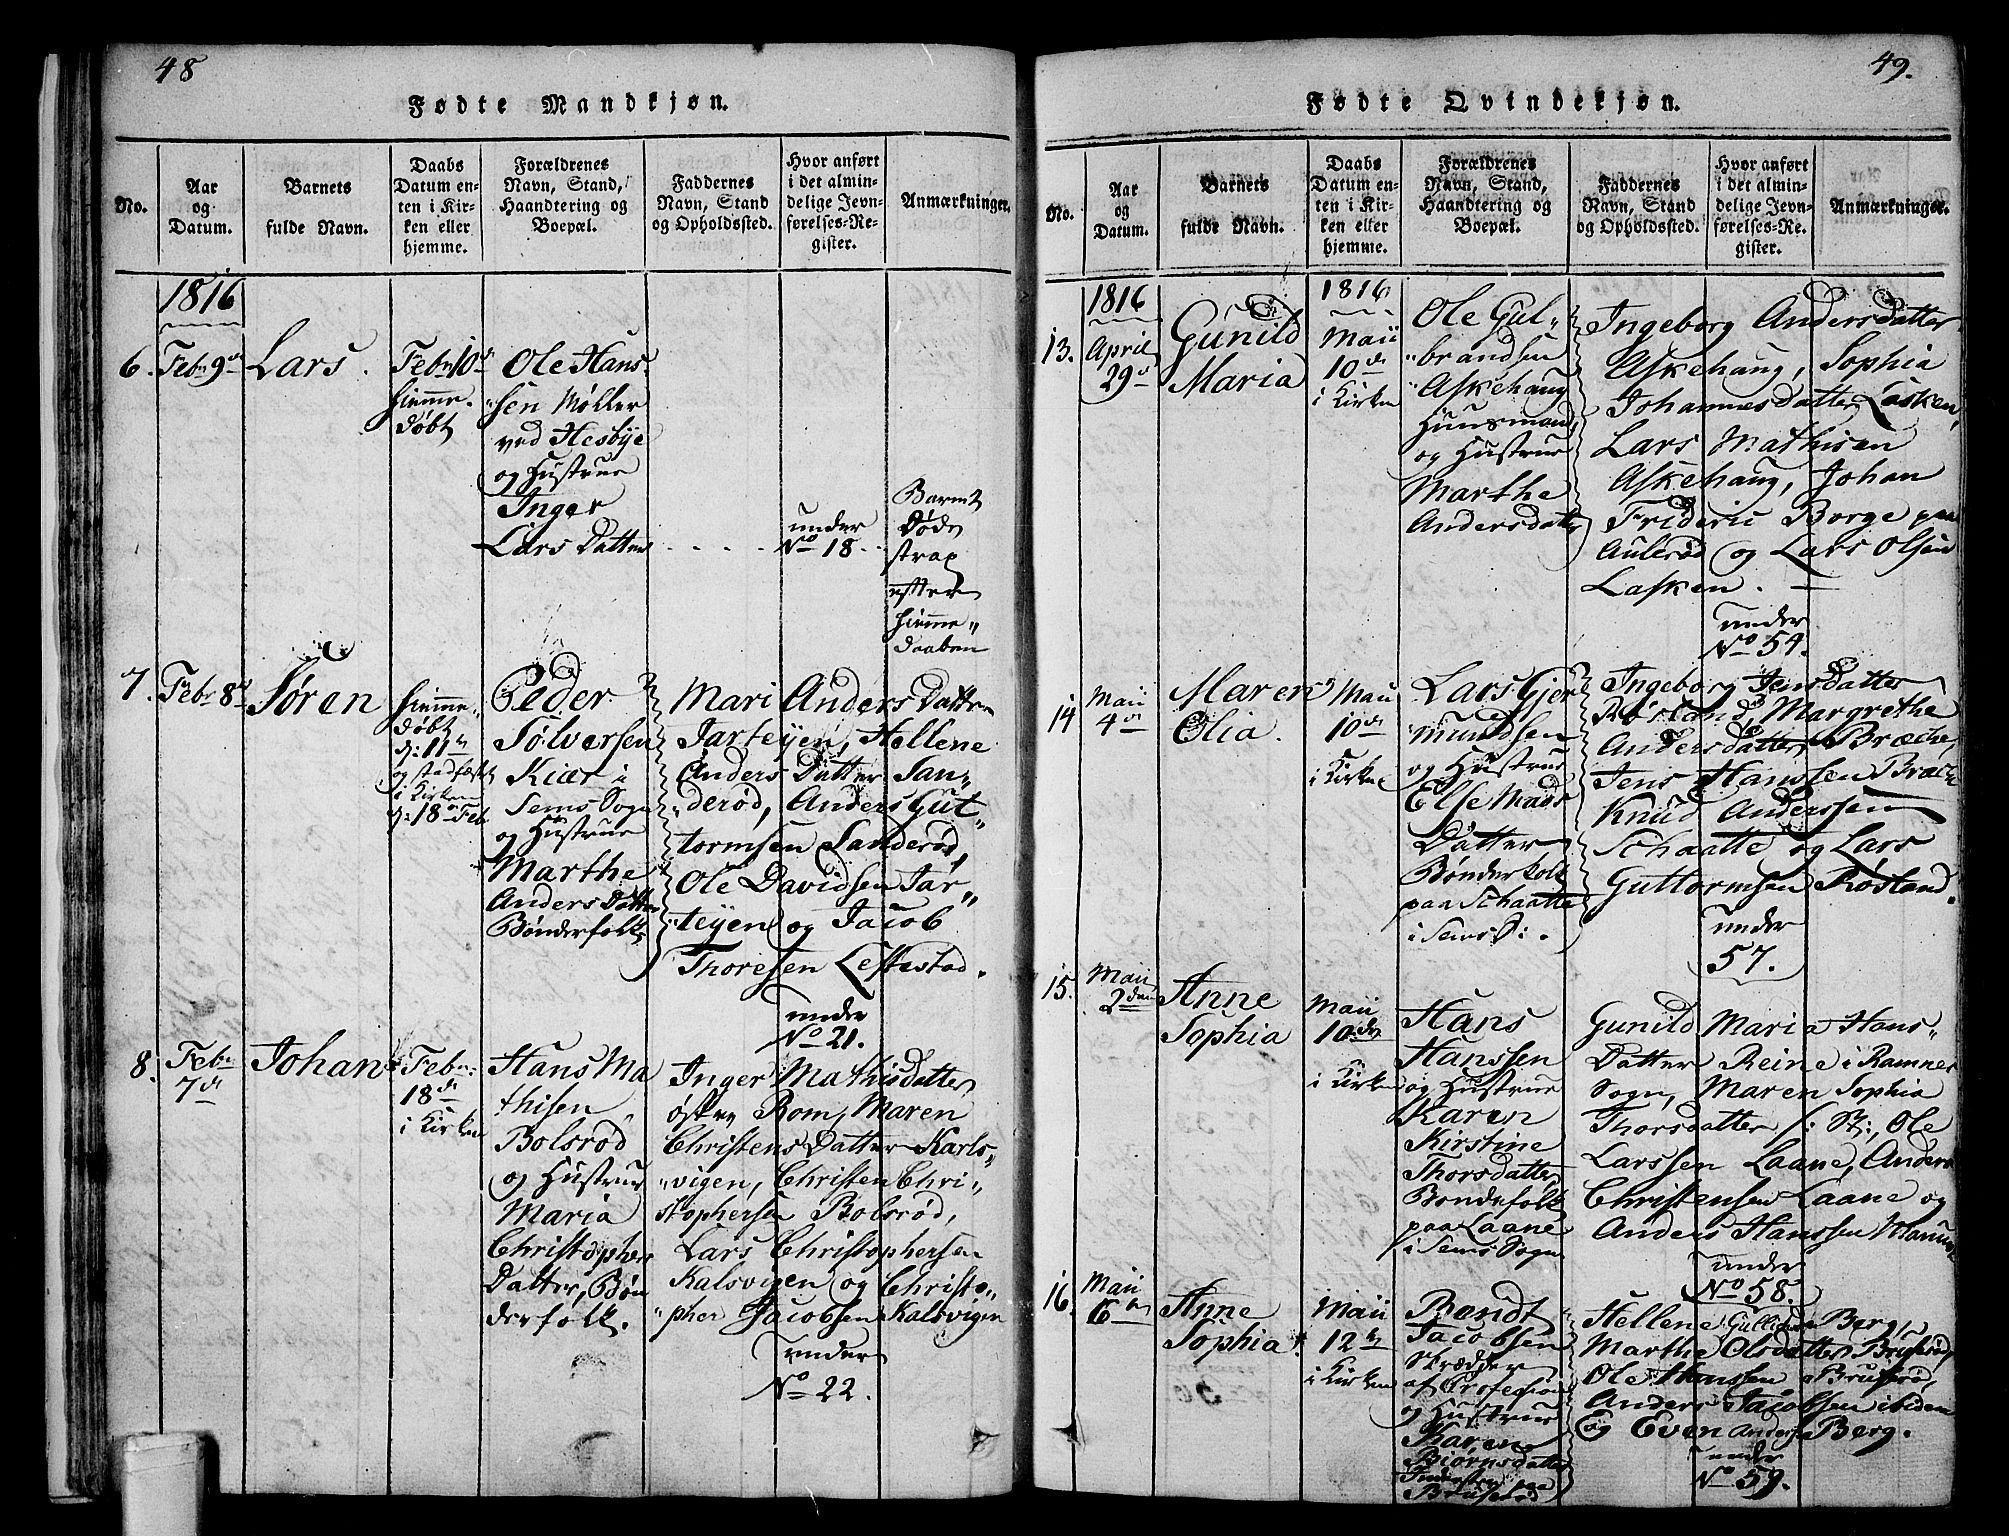 48
Fødte Mandkjøn.
No.
Aar
og
Datum.
Barnets
fulde Navn.
Daabs
Datum en-
ten i Kir-
ken eller
hjemme.
Forældrenes
Navn, Stand,
Haandtering og
Boepæl.
Faddernes
Navn, Stand
og Opholdssted.
Hvor anført
i det almin-
delige Jevn-
førelses-Re-
gister.
Anmærkninger.
1816
6.
Febr 9de
Lars.
Febr 10de
hiemme-
døbt
Ole Hans-
"sen Møller
ved Hesbye
og Hustrue
Inger
Lars Datter
under
No 18
Barnet
døde
strax
efter
hiemme"
daaben
7.
Febr 8de
Søren
hiemme"
døbt
d: 11te
og stadfæst
i Kirken
d: 18 Feb
Peder
Sølversen
Kiær i
Sems Sogn
og Hustrue
Marthe
Anders Datter
Bønderfolk
Mari Anders Datter
Jarteyen, Hellene
Anders Datter San"
"derød, Anders Gut"
tormsen Sanderød,
Ole Davidsen Jar"
"teyen og Jacob
Thoresen Leststad.
under
No 21.
8.
Febr
7de
Johan
Febr:
18de
i Kirken
Hans Ma
thisen
Bolsrød
og Hustrue
Maria
Christopher
Datter, Bøn
derfolk.
Inger Mathisdatter
østre Rom, Maren
Christens Datter Karls"
"vigen, Christen Chri"
stophersen Bolsrød,
Lars Christophersen
Kalsvigen og Christo"
"pher Jacobsen Kalsvigen
under
No 22.
49.
Fødte Qvindekjøn.
No.
Aar
og
Datum.
Barnets
fulde Navn.
Daabs
Datum en-
ten i Kir-
ken eller
hjemme.
Forældrenes
Navn, Stand,
Haandtering og
Boepæl.
Faddernes
Navn, Stand
og Opholdssted.
Hvor anført
i det almin-
delige Jevn-
førelses-Re-
gister.
Anmærkninger.
1816
13.
April
29de
Gunild
Maria
1816
Maii
10de
i Kirken
Ole Gul"
"brandsen
"Askehaug
Huusmand,
og Hustrue
Marthe
Andersdatter
Ingeborg Andersdatter
Askehaug, Sophia
Johannesdatter Lasken,
Lars Mathisen
Askehaug, Johan
Frideric Borge paa
Aulerød og Lars Olsen
Lasken.
under
No 54.
14
Maii
4de
Maren
Olia.
Maii
10de
i Kirken
Lars Gjer
mundsen
og Hustrue
Else Mads
Datter
Bønderfolk
paa Schaatte
i Sems S:.
Ingeborg Jensdatter
Røsland, Margrethe
Andersdatter Bræche,
Jens Hanssen Bræche
Knud Anderssen
Schaatte og Lars
Guttormsen Røsland.
under
57.
15.
Maii
2den
Anne
Sophia
Maii
10de
i Kirken
Hans
Hanssen
og Hustrue
Karen
Kirstine
Thorsdatter
Bøndefolk
paa Laane
i Sems Sogn
Gunild Maria Hans"
Datter Reine i Ramnes
Sogn, Maren Sophia
Thorsdatter /: St:, Ole
Larssen Laane, Anders
Christensen Laane og
Anders Hanssen
under
No 58.
16.
Maii
6te
Anne
Sophia
Maii
12te
i Kirken
Bendt
Jacobsen
Skrædder
af Profession
og Hustrue
Karen
Biørnsdatter
paa
Bruserød
Hellene Berg,
Marthe Olsdatter Bruserød,
Ole Hanssen Bruserød,
Anders Jacobsen ibidem
og Even Anders Berg.
under
No 59.